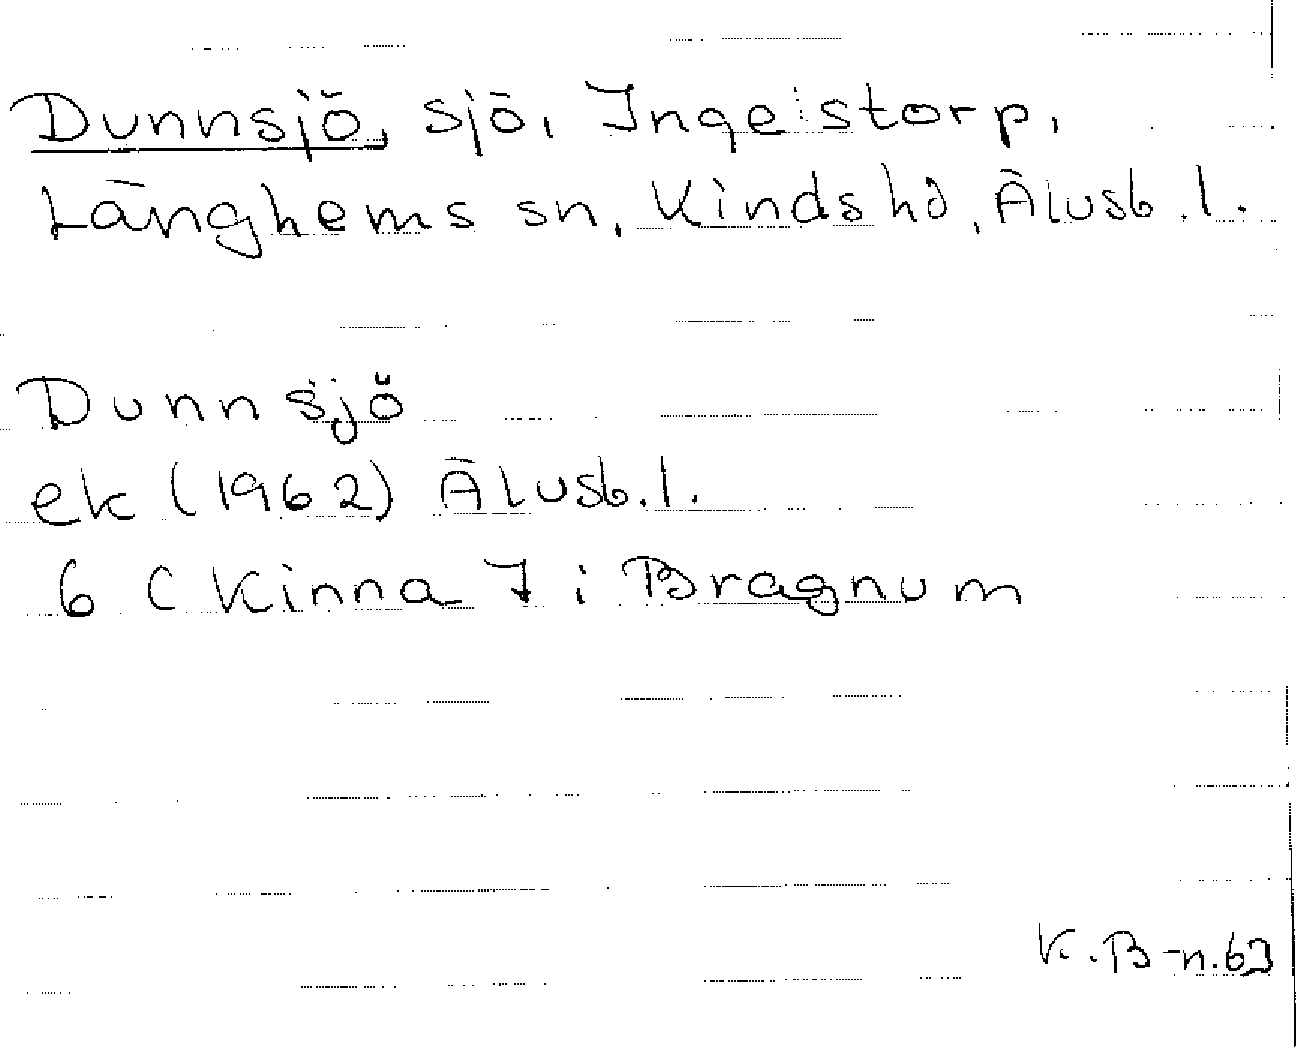 Dunnsjö, sjö, Ingelstorp,
Länghems sn, Kinds hd, Älvsb. l.
Dunnsjö
ek (1962) Älvsb. l.
6 C Kinna I i Bragnum
K. B-n. 63